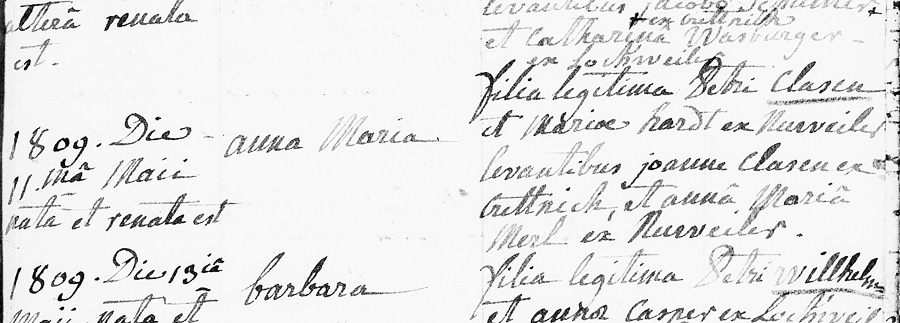 alterâ renata
est.
levantibus jacobo
ex crettnich
et Catharinâ Wasburger
ex Lochweiler
1809. Die
11.mâ Maii
nata et renata est
anna Maria
filia legitima Petri Clasen
et Mariæ hardt ex Nurveiler
levantibus joanne Clasen ex
crettnich, et annâ Mariâ
Merl ex Nurveiler.
1809. Die 13tiâ
Maii nata et
barbara
filia legitima Petri Willhelm
et annæ Casper ex Lochweil